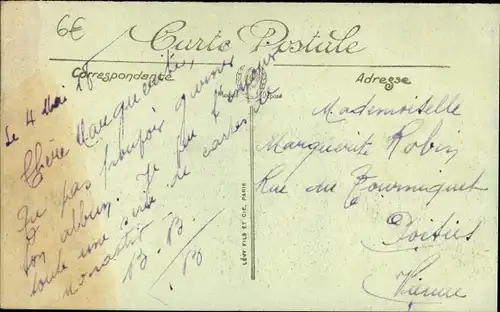 6€
Carte Postale
Correspondance
Adresse
Le 4 Mai 18
Chère Marguerite,
pas pouvoir
ton album. Je
toute une de cartes
Monastir
B. B.
B
LÉVY FILS ET CIE, PARIS
Mademoiselle
Marguerite Robin
Rue du Fourniquet
Poitiers
Vienne